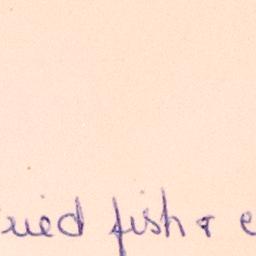 ried fish & c